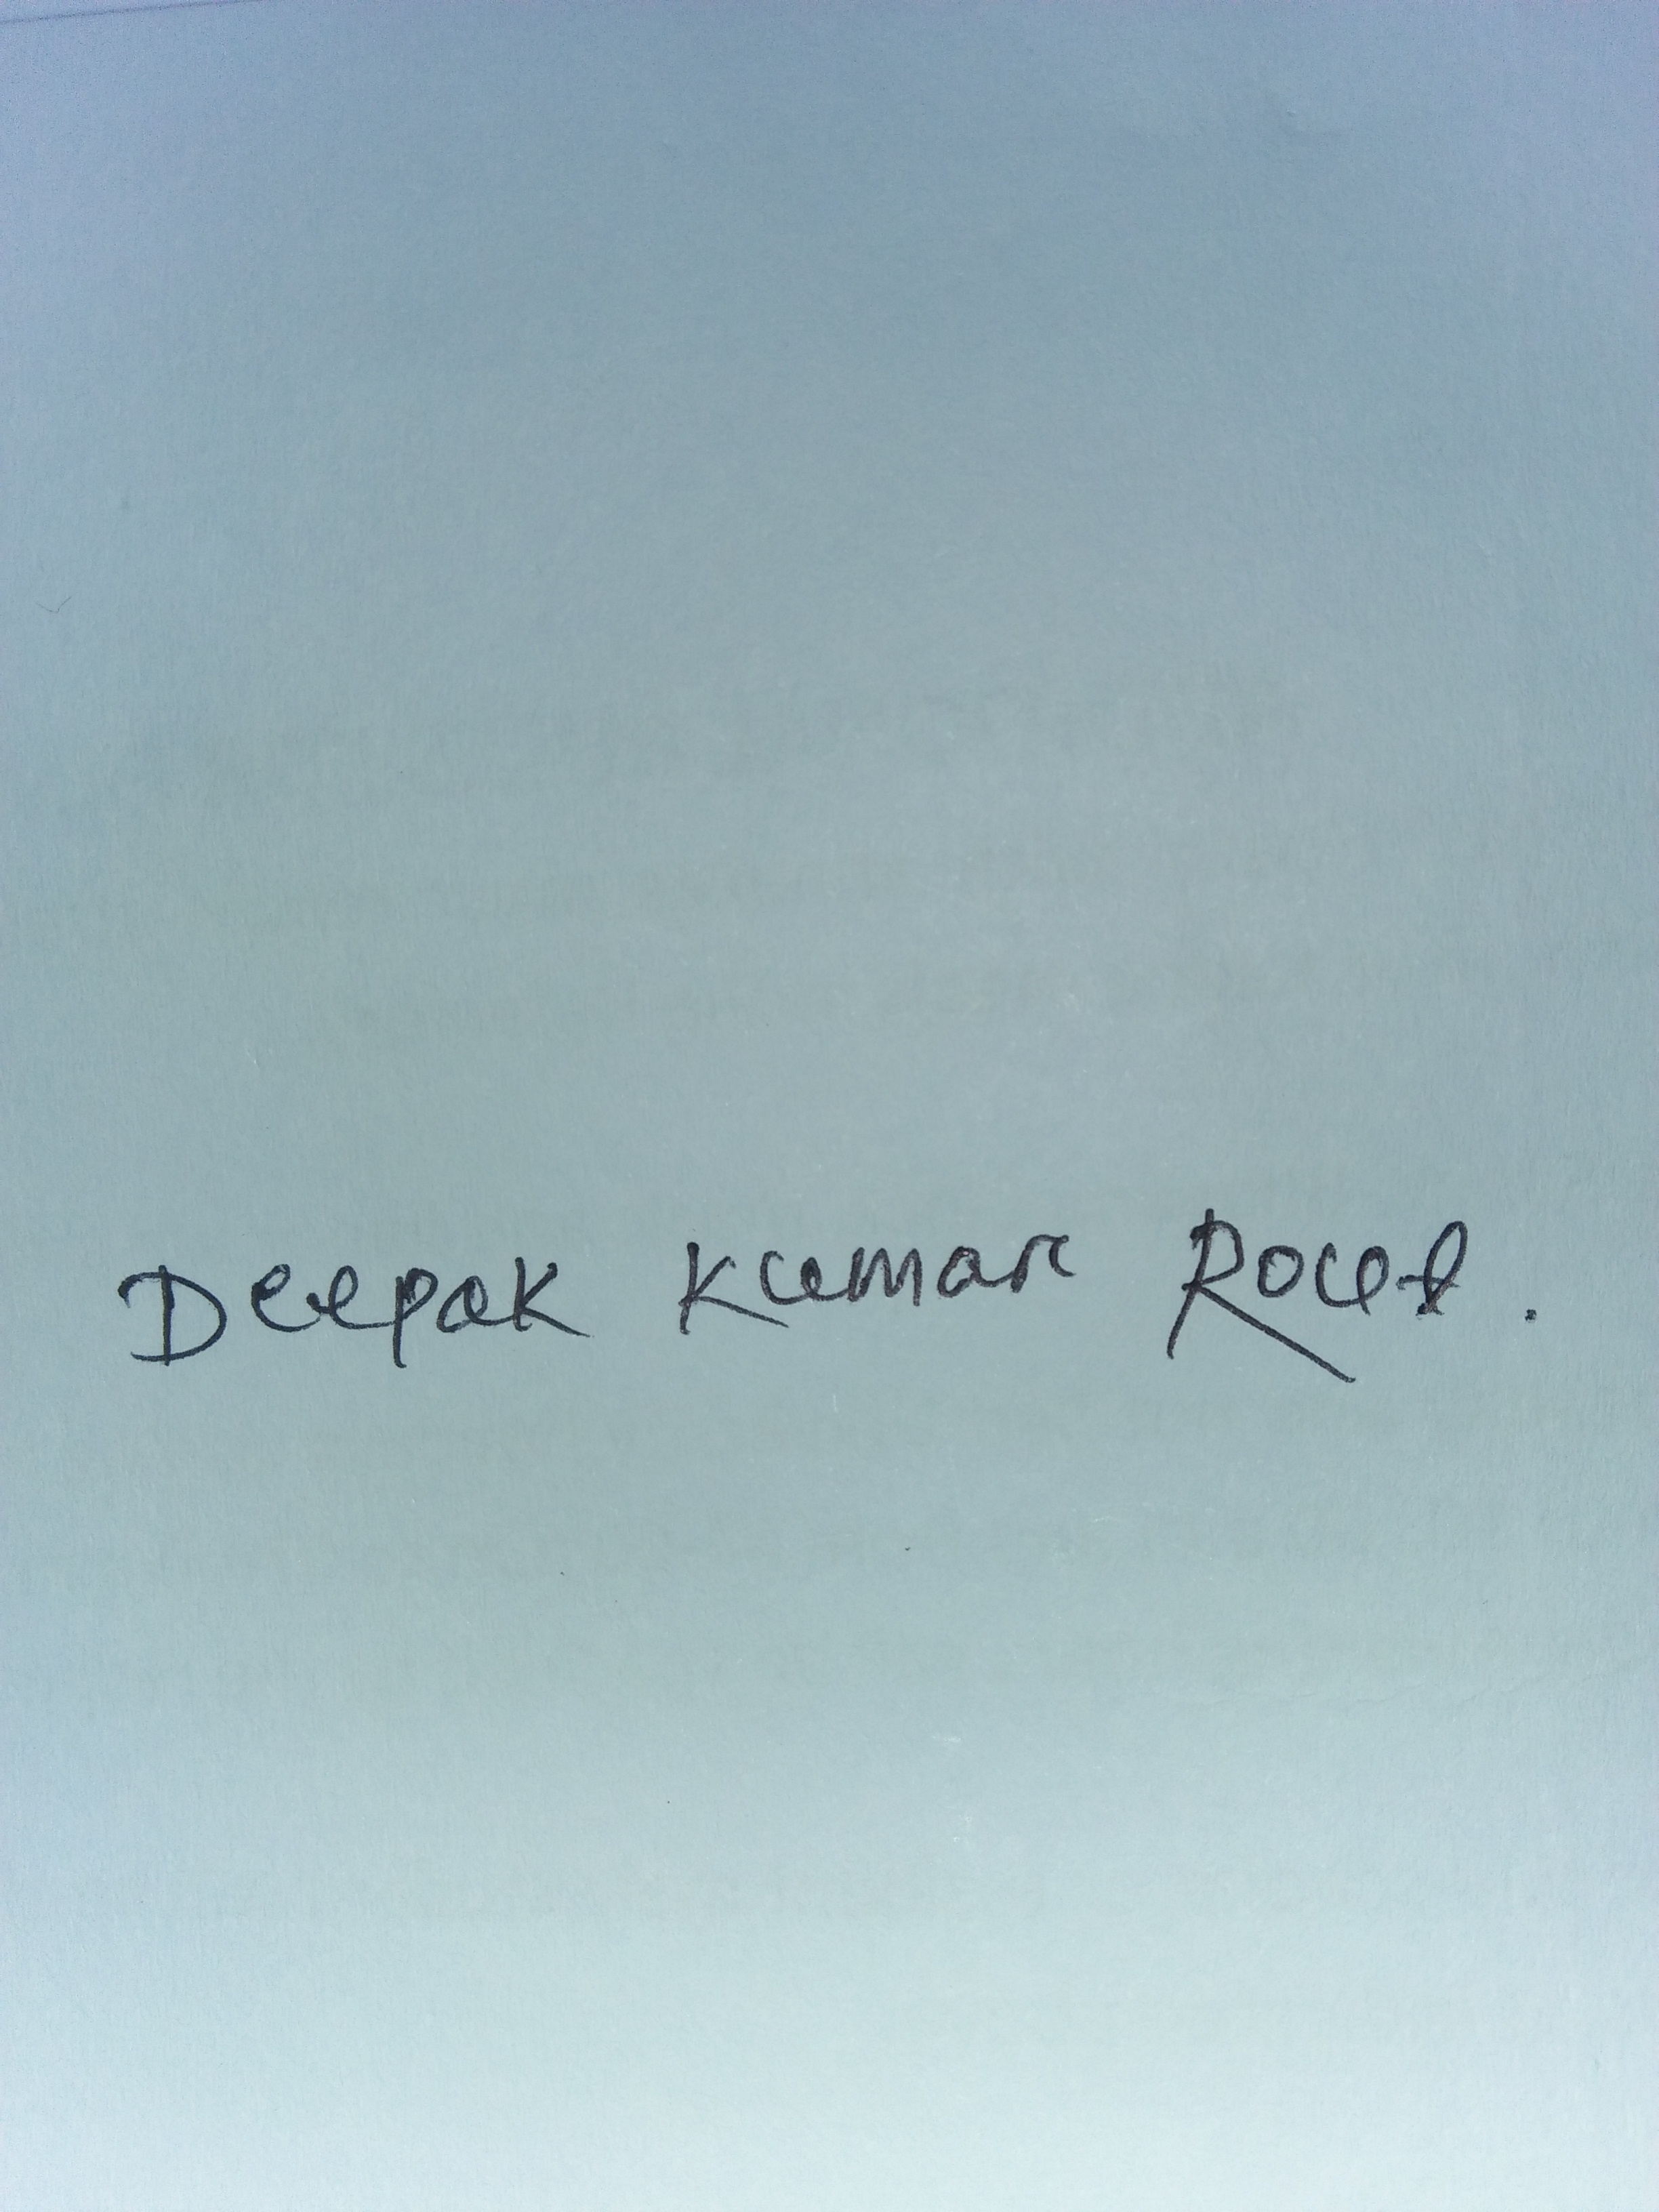 Deepak Kumar Rout .